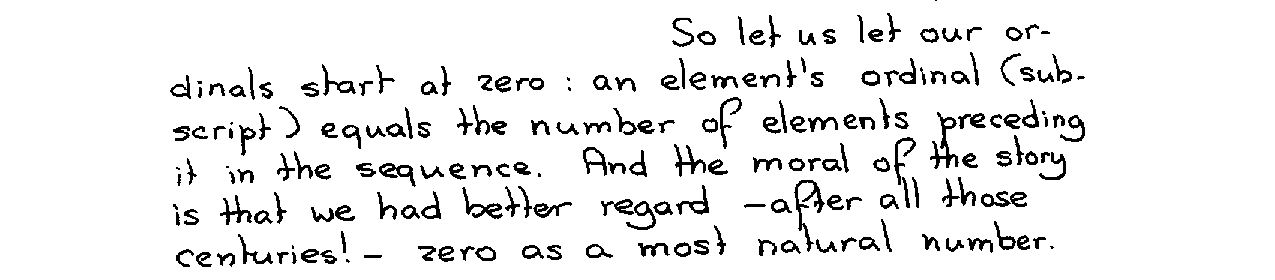 So let us let our or-
dinals start at zero : an element's ordinal (sub-
script) equals the number of elements preceding
it in the sequence. And the moral of the story
is that we had better regard –after all those
centuries!– zero as a most natural number.